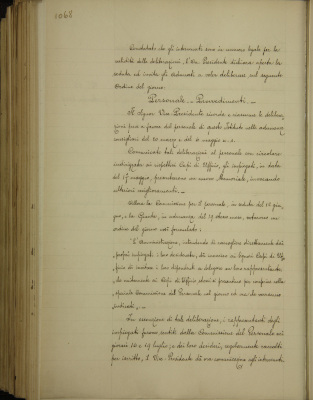 1068
Constatato che gli intervenuti sono in numero legale per la
validità delle deliberazioni, l'On. Presidente dichiara aperta la
seduta ed invita gli adunati a voler deliberare sul seguente
Ordine del giorno
Personale - Provvedimenti. -
Il Signor Vice Presidente ricorda e riassume le delibera-
zioni prese a favore del personale di questo Istituto nelle adunanze
consigliari del 20 marzo e del 6 maggio u.s.
Comunicate tali deliberazioni al personale con circolare
indirizzata ai rispettivi Capi di Ufficio, gli impiegati, in data
del 17 maggio, presentarono un nuovo Memoriale, invocando
ulteriori miglioramenti. -
Allora la Commissione per il personale, in seduta del 18 giu-
gno, e la
, in adunanza del 19 stesso mese, votarono un
ordine del giorno così formulato:
"L'Amministrazione, intendendo di consigliare direttamente dai
"propri impiegati i loro desiderata, dà incarico ai Signori Capi di Uf-
"ficio di invitare i loro dipendenti a delegare un loro rappresentante
"che unitamente ai Capi di Ufficio dovrà presentarsi per conferire colla
"speciale Commissione del Personale nel giorno ed ora che verranno
"indicati". -
In esecuzione di tale deliberazione, i rappresentanti degli
impiegati furono sentiti dalla Commissione del Personale nei
giorni 10 e 19 luglio, e dei loro desideri, regolarmente raccolti
per iscritto, il Vice-Presidente dà ora comunicazione agli intervenuti